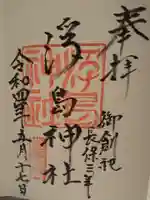 奉拝
御創祀
長保三年
浮島神社
令和四年五月十七日